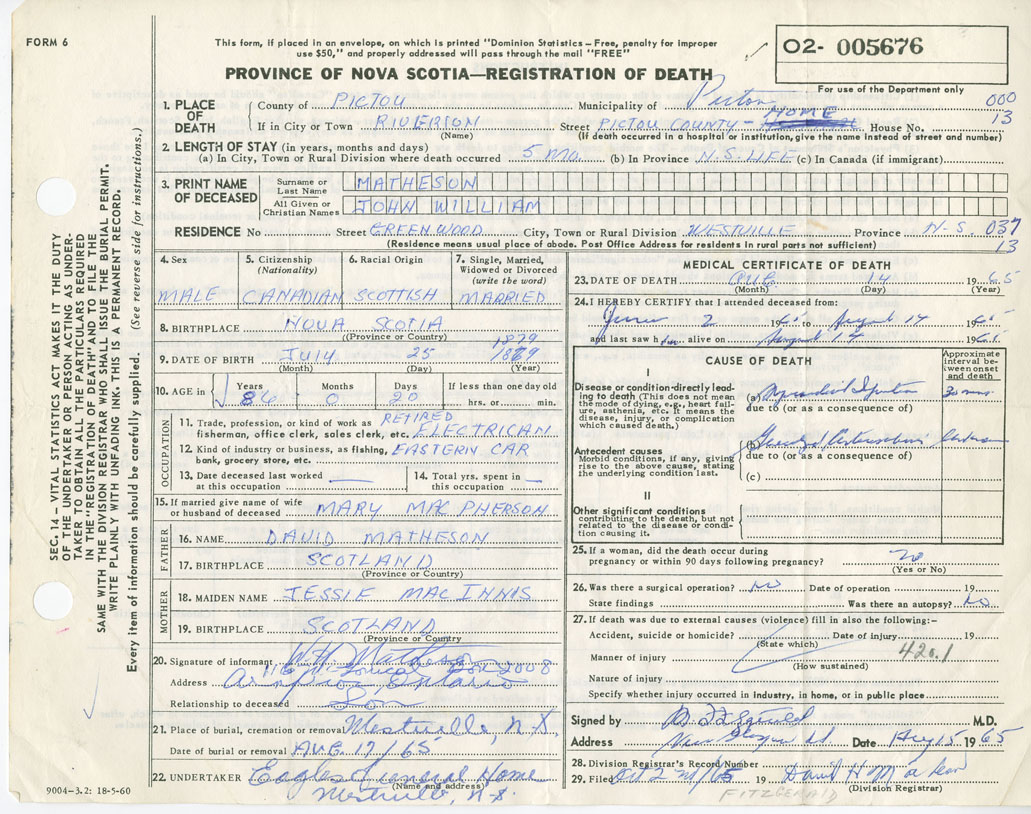 FORM 6
This form, if placed in an envelope, on which is printed "Dominion Statistics – Free, penalty for improper
use $50," and properly addressed will pass through the mail "FREE"
02- 005676
PROVINCE OF NOVA SCOTIA—REGISTRATION OF DEATH
For use of the Department only
000
13
1. PLACE OF DEATH
County of PICTOU Municipality of Pictou
If in City or Town RIVERTON Street PICTOU COUNTY - HOME House No.
(Name) (If death occurred in a hospital or institution, give the name instead of street and number)
2. LENGTH OF STAY (in years, months and days)
(a) In City, Town or Rural Division where death occurred 5 Mo. (b) In Province N.S. LIFE (c) In Canada (if immigrant)
3. PRINT NAME OF DECEASED
Surname or Last Name MATHESON
All Given or Christian Names JOHN WILLIAM
RESIDENCE No Street GREENWOOD City, Town or Rural Division WESTVILLE Province N-S. 037
13
(Residence means usual place of abode. Post Office Address for residents in rural parts not sufficient)
4. Sex
MALE
5. Citizenship
(Nationality)
CANADIAN
6. Racial Origin
SCOTTISH
7. Single, Married,
Widowed or Divorced
(write the word)
MARRIED
8. BIRTHPLACE NOVA SCOTIA
(Province or Country)
1879
9. DATE OF BIRTH JULY 25
(Month) (Day) (Year)
10. AGE in
Years 86
Months 0
Days 20
If less than one day old
hrs. or min.
OCCUPATION
11. Trade, profession, or kind of work as RETIRED
fisherman, office clerk, sales clerk, etc. ELECTRICAN
12. Kind of industry or business, as fishing, EASTERN CAR
bank, grocery store, etc.
13. Date deceased last worked
at this occupation
14. Total yrs. spent in
this occupation
15. If married give name of wife
or husband of deceased MARY MACPHERSON
FATHER
16. NAME DAVID MATHESON
17. BIRTHPLACE SCOTLAND
(Province or Country)
MOTHER
18. MAIDEN NAME JESSIE MAC INNIS
19. BIRTHPLACE SCOTLAND
(Province or Country
20. Signature of informant
Address Arnprior, Ontario
Relationship to deceased Son
21. Place of burial, cremation or removal Westville, N.S.
Date of burial or removal AUG 17/65
22. UNDERTAKER Eagles Funeral Home
(Name and address)
Westville, N-S.
9004-3.2: 18-5-60
MEDICAL CERTIFICATE OF DEATH
23. DATE OF DEATH AUG 14 1965
(Month) (Day) (Year)
24. I HEREBY CERTIFY that I attended deceased from:
June 2 1965 to August 14 1965
and last saw him alive on August 14 1965.
CAUSE OF DEATH
Approximate
interval be-
tween onset
and death
I
Disease or condition directly lead-
ing to death (This does not mean
the mode of dying, e.g., heart fail-
ure, asthenia, etc. It means the
disease, injury, or complication
which caused death.)
(a) Myocardial Infarction 30 mins.
due to (or as a consequence of)
Antecedent causes
Morbid conditions, if any, giving
rise to the above cause, stating
the underlying condition last.
(b)
due to (or as a consequence of)
(c)
II
Other significant conditions
contributing to the death, but not
related to the disease or condi-
tion causing it.
25. If a woman, did the death occur during
pregnancy or within 90 days following pregnancy? no
(Yes or No)
26. Was there a surgical operation? No Date of operation 19
State findings Was there an autopsy? No
27. If death was due to external causes (violence) fill in also the following:-
Accident, suicide or homicide? Date of injury 19
(State which)
Manner of injury 420.1
(How sustained)
Nature of injury
Specify whether injury occurred in industry, in home, or in public place
Signed by M.D.
Address New Glasgow NS Date Aug 15 1965
28. Division Registrar's Record Number
29. Filed 19 David H
(Division Registrar)
FITZGERALD
SEC. 14 – VITAL STATISTICS ACT MAKES IT THE DUTY
OF THE UNDERTAKER OR PERSON ACTING AS UNDER-
TAKER TO OBTAIN ALL THE PARTICULARS REQUIRED
IN THE "REGISTRATION OF DEATH" AND TO FILE THE
SAME WITH THE DIVISION REGISTRAR WHO SHALL ISSUE THE BURIAL PERMIT.
WRITE PLAINLY WITH UNFADING INK. THIS IS A PERMANENT RECORD.
Every item of information should be carefully supplied. (See reverse side for instructions.)